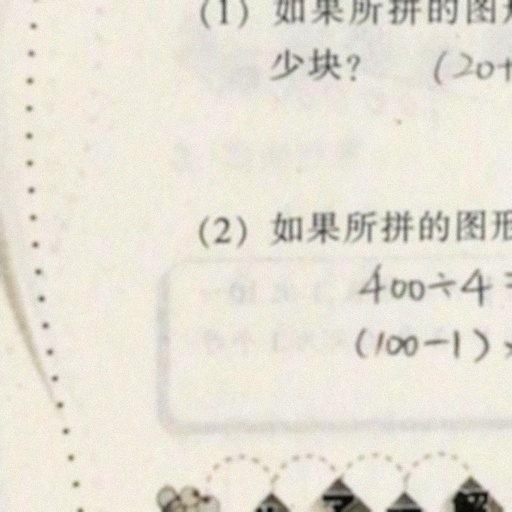 (1) 如果所拼的图形
少块? (20+
(2) 如果所拼的图形
400÷4=
(100-1)×
了 解